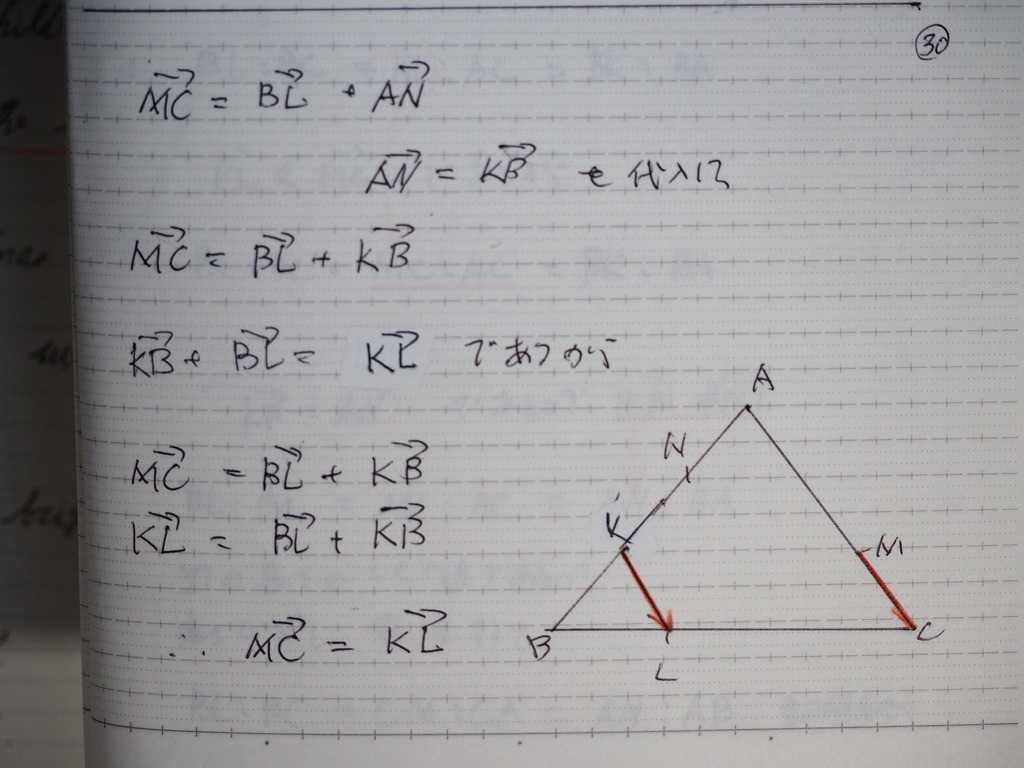 ㉚
MC = BL + AN
AN = KB を代入に
MC = BL + KB
KB + BL = KL であるから
MC = BL + KB
KL = BL + KB
∴ MC = KL
A
N
K
M
B
C
L